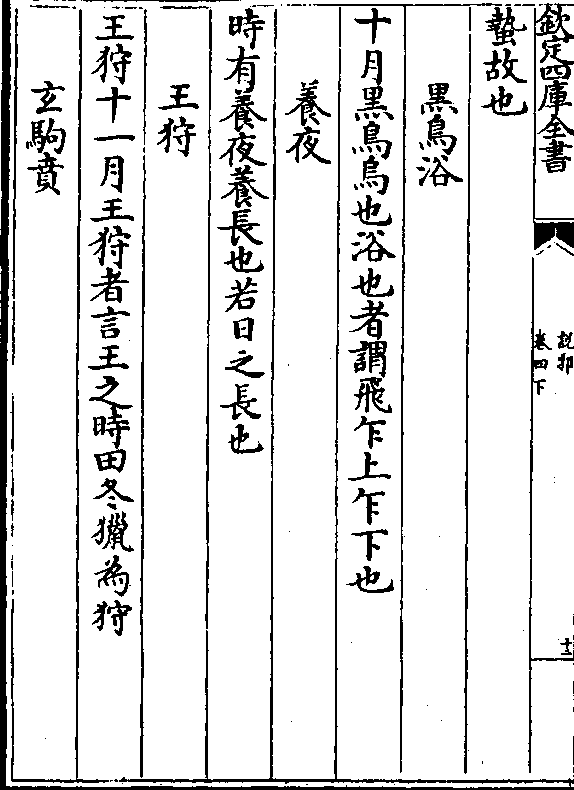 欽定四庫全書
說郛
卷四下
十二
蟄故也
黑鳥浴
十月黑鳥烏也浴也者謂飛乍上乍下也
養夜
時有養夜養長也若日之長也
王狩
王狩十一月王狩者言王之時田冬獵為狩
玄駒賁